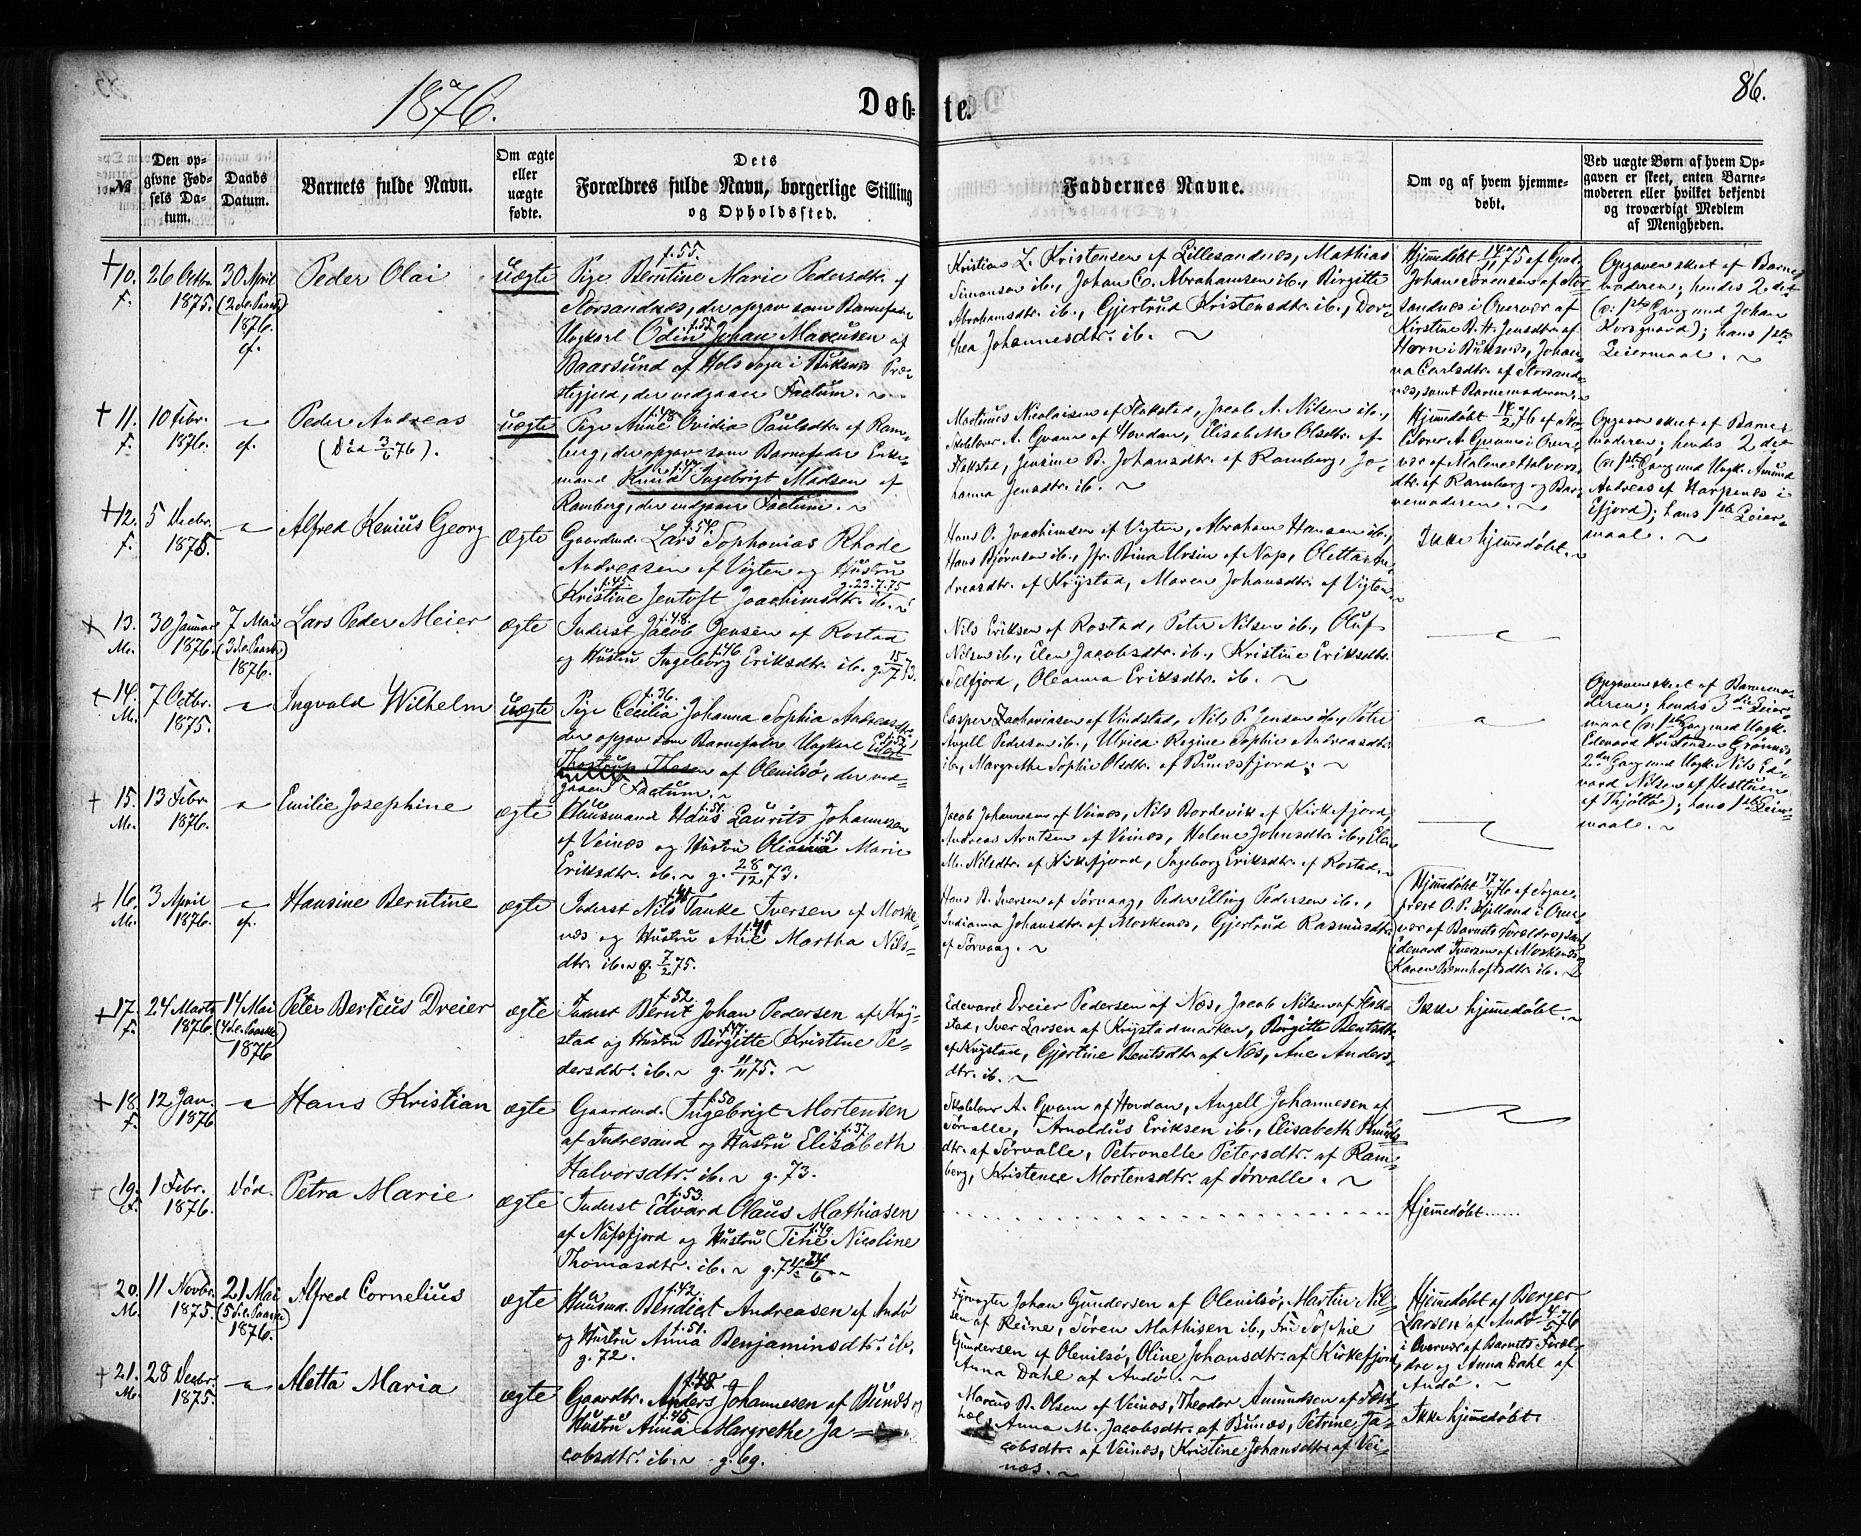 1876.
Døb-te.
86.
№
Den op-
givne Fød-
sels Da-
tum.
Daabs
Datum.
Barnets fulde Navn.
Om ægte
eller
uægte
fødte.
Dets
Forældres fulde Navn, borgerlige Stilling
og Opholdssted.
Faddernes Navne.
Om og af hvem hjemme-
døbt.
Ved uægte Børn af hvem Op-
gaven er skeet, enten Barne-
moderen eller hvilket bekjendt
og troværdigt Medlem
af Menigheden.
10.
F.
26 Octbr.
1875.
30 April
(2 S. e. Paaske)
1876.
cf.
Peder Olai
uægte
f. 55.
Pige Berntine Marie Pedersdtr. af
Storsandnæs, der opgav som Barnefader
f. 52
Ungkarl Odin Johan Mareusen af
Baarsund af Hols Sogn i Buksnæs Præ-
stegjeld, der vedgaaer Factum. ~
Kristian Z. Kristensen af Lillesandnæs, Mathias
Simonsen ib., Johan C. Abrahamsen ib., Birgitte
Abrahamsdtr. ib., Gjertrud Kristensdtr. ib., Doro-
thea Johannesdtr. ib. ~
Hjemmedøbt 14/11 75 af Gaardm.
Johan Sørensen af Stor-
sandnæs i Overvær af
Kirstine B. H. Jensdtr. af
Horn i Buksnæs, Johan-
na Carlsdtr. af Storsand-
næs, samt Barnemoderen. ~
Opgaven skeet af Barne-
moderen; hendes 2det
(ɔ: 1ste Gang med Johan
Korsgaard); hans 1ste
Leiermaal. ~
11.
F.
10 Febr.
1876.
~
cf.
Peder Andreas
(Død 3/6 76).
uægte
f. 48.
Pige Anne Ovidia Paulsdtr. af Ram-
berg, der opgav som Barnefader Enke-
f. 47.
mand Knud Ingebrigt Madsen af
Ramberg, der vedgaaer Factum. ~
Martinus Nicolaisen af Flakstad, Jacob A. Nilsen ib.,
Skolelærer A. Qvam af Hordan, Elisabeth Olsdtr. af
Flakstad, Jensine B. Johansdtr. af Ramberg, Jo-
hanna Jensdtr. ib. ~
Hjemmedøbt 14/2 76 af Sko-
lelærer A. Qvam i Over-
vær af Malene Halvors-
dtr. af Ramberg og Bar-
nemoderen. ~
Opgaven skeet af Barne-
moderen; hendes 2det
(ɔ: 1ste Gang med Ungk. Amund
Andreas af Harpenes i
Eifjord); hans 1ste Leier-
maal. ~
12.
F.
5 Decbr.
1875.
~
Alfred Kenius Georg
ægte
f. 54.
Gaardmd. Lars Sophonias Rhode
Andreasen af Vigten og Hustru
f. 45. g. 23.7.75
Kristine Jentoft Joachimsdtr. ib. ~
Hans O. Joachimsen af Vigten, Abraham Hansen ib.,
Hans Bjørnsen ib., Jfr. Bina Ursin af Nap, Oletta An-
dreasdtr. af Krystad, Maren Johansdtr. af Vigten. ~
Ikke hjemmedøbt. ~
13.
M.
30 Januar
1876.
7 Mai
(3 S. e. Paaske)
1876.
Lars Peder Meier
ægte
f. 48.
Inderst Jacob Jensen af Rostad
f. 46
og Hustru Ingeborg Eriksdtr. ib. g. 15/7 73.
Nils Eriksen af Rostad, Peter Nilsen ib., Oluf
Nilsen ib., Elen Jacobsdtr. ib., Kristine Eriksdtr.
Selfjord, Oleanna Eriksdtr. ib. ~
~
14.
M.
7 Octbr.
1875.
~
Ingvald Wilhelm
uægte
f. 36.
Pige Cecilia Johanna Sophia Andreasdtr.,
der opgav som Barnefader Ungkarl
af Olenilsø, der ved-
gaaer Factum. ~
Casper Zachariasen af Vindstad, Nils P. Jensen ib., Petri
Angell Pedersen ib., Ulrica Regine Sophie Andreasdtr.
ib., Margrethe Sophie Olsdtr. af Bunæsfjord. ~
~
Opgaven skeet af Barnemo-
deren; hendes 3die Leier-
maal (ɔ: 1ste Gang med Ungk.
Edevard Kristensen Grønnæs
2den Gang med Ungk. Nils Ed-
vard Nilsen af Hesttuen
af Thjøttø); hans 1ste Leier-
maal. ~
15.
M.
13 Febr.
1876.
~
Emilie Josephine
ægte
f. 51.
Huusmand Hans Laurits Johannesen
f. 51.
af Veinæs og Hustru Olianna Marie
Eriksdtr. ib. ~ g. 28/12 73.
Jacob Johannesen af Veinæs, Nils Bordevik af Kirkefjord,
Andreas Arntsen af Veinæs, Helene Johnsdtr. ib., Elen
M. Nilsdtr. af Kirkefjord, Ingeborg Eriksdtr. af Rostad. ~
~
16.
M.
3 April
1876.
~
cf.
Hansine Berntine
ægte
Inderst Nils Tanke Iversen af Moske-
næs og Hustru Ane Martha Nils-
dtr. ib. ~ g. 7/2 75.
Hans B. Iversen af Sørvaag, Peder Elling Pedersen ib.,
Indianna Johansdtr. af Moskenæs, Gjertrud Rasmusdtr.
af Sørvaag. ~
Hjemmedøbt 17/4 76 af Sogne-
præst O. P. Hjelland i Over-
vær af Barnets Forældre, samt
Edevard Iversen af Moskenæs,
Karen Bernhoftsdtr. ib. ~
17.
F.
24 Marts
1876.
14 Mai
(4 S. e. Paaske)
1876
Peter Berteus Dreier
ægte
f. 52.
Inderst Bernt Johan Pedersen af Kry-
f. 47.
stad og Hustru Bergitte Kristine Pe-
dersdtr. ib. ~ g. 11/11 75. ~
Edevard Dreier Pedersen af Næs, Jacob Nilsen af Flak-
stad, Iver Larsen af Krystadmarken, Birgitte Bentsdtr.
af Krystad, Gjertine Bentsdtr. af Næs, Ane Anders-
dtr. ib. ~
Ikke hjemmedøbt. ~
18.
F.
12 Jan.
1876
~
Hans Kristian
ægte
f. 50
Gaardmd. Ingebrigt Mortensen
f. 37.
af Indresand og Hustru Elisabeth
Halvorsdtr. ib. ~ g. 73.
Skolelærer A. Qvam af Hordan, Angell Johannesen af
Sørvalle, Arnoldus Eriksen ib., Elisabeth Knuds-
dtr. af Sørvalle, Petronelle Petersdtr. af Ram-
berg, Kristence Mortensdtr. af Sørvalle. ~
~
19.
F.
1 Febr.
1876.
Død.
Petra Marie
ægte
f. 53.
Inderst Edvard Olaus Mathiasen
f. 49
af Næsfjord og Hustru Tine Nicoline
Thomasdtr. ib. ~ g.
Hjemmedøbt......
20.
M.
11 Novbr.
1875.
21 Mai
(5 S. e. Paaske)
1876.
Alfred Cornelius
ægte
f. 42.
Huusmd. Bendigt Andreasen af Andø
f. 51.
og Hustru Anna Benjaminsdtr. ib.
g. 72.
Fyrvogter Johan Gundersen af Olenilsø, Martin Nil-
sen af Reine, Søren Mathisen ib., Fru Sophie
Gundersen af Olenilsø, Oline Johansdtr. af Kirkefjord,
Anna Dahl af Andø. ~
Hjemmedøbt af Berger
Larsen af Andø 4/5 76
i Overvær af Barnets Foræl-
dre og Anna Dahl af
Andø. ~
21.
M.
28 Decbr.
1875.
~
Aletta Maria
ægte
f. 48
Gaardbr. Anders Johannesen af Bunæs og
f. 45.
Hustru Anna Margrethe Ja-
cobsdtr. ib. ~ g. 69.
Marcus B. Olsen af Veinæs, Theodor Amundsen af
Anna M. Jacobsdtr. af Bunæs, Petrine Ja-
cobsdtr. af Veinæs, Kristine Johansdtr. af Vei-
næs. ~
Ikke hjemmedøbt.